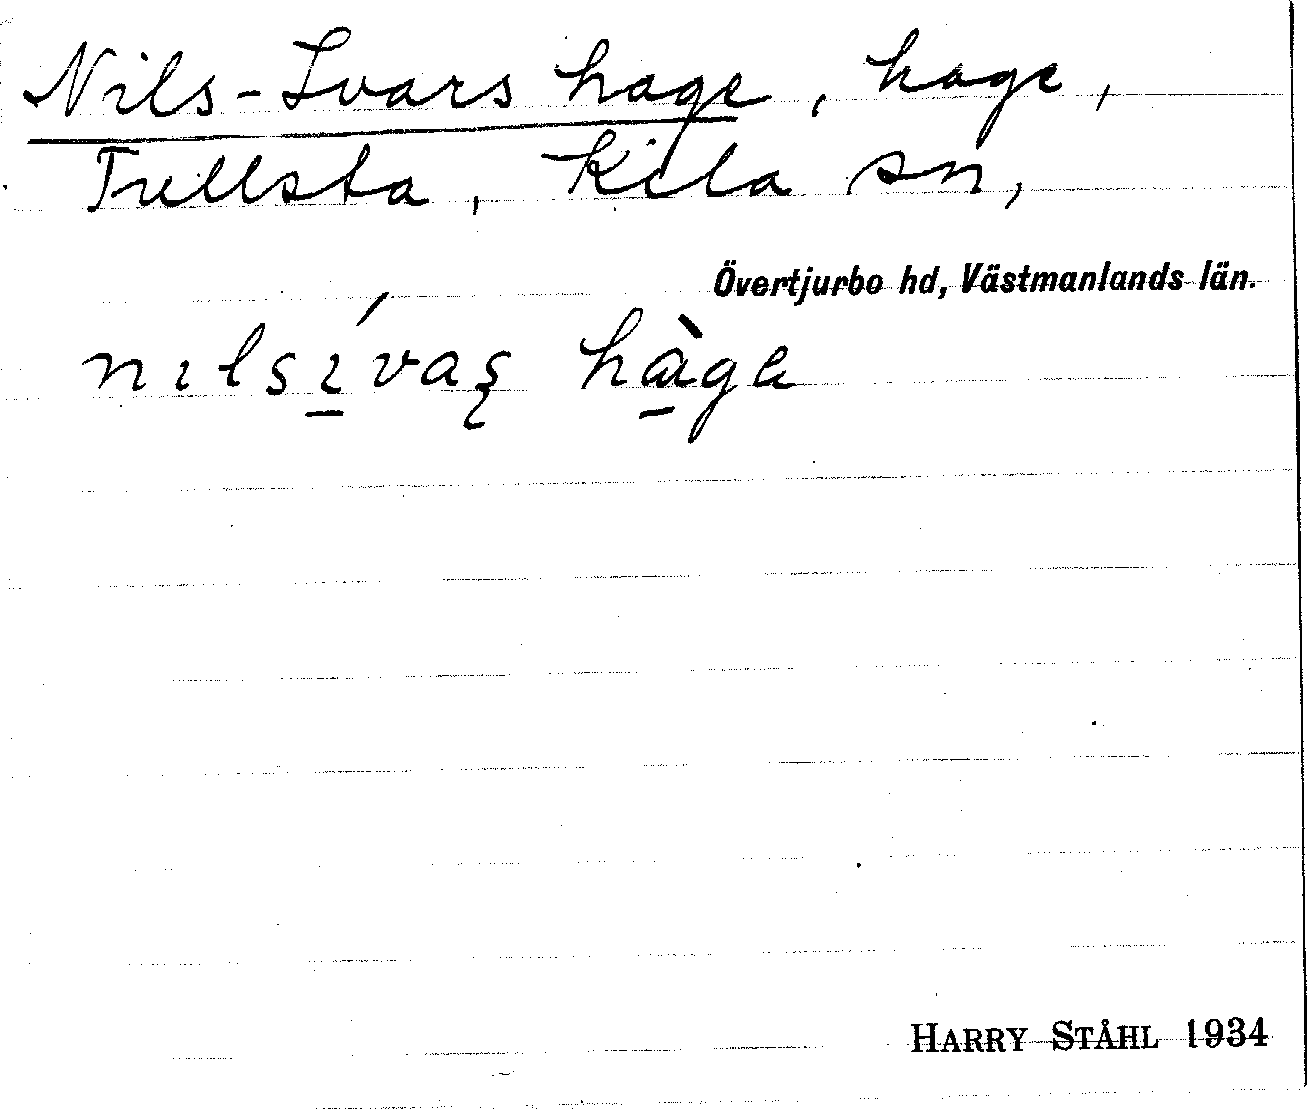 Nils-Ivars hage, hage,
Trellsta, Kila sn,
Övertjurbo hd, Västmanlands län.
nılsı̱́vaş hà̱ga
HARRY STÅHL 1934